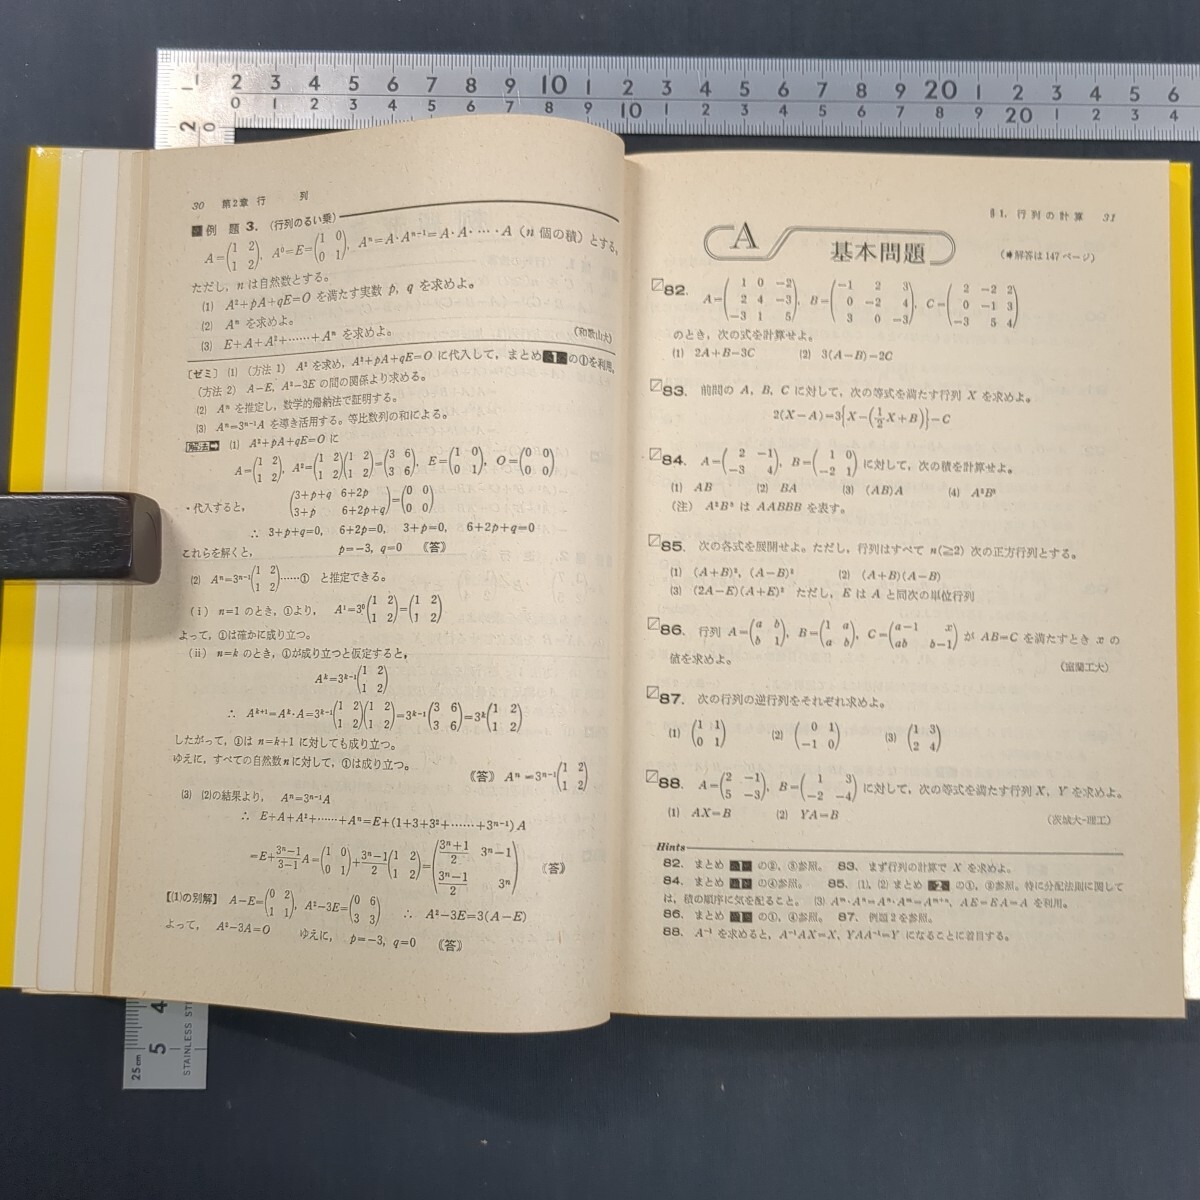 1 2 3 4 5 6 7 8 9 10 1 2 3 4 5 6 7 8 9 20 1 2 3 4 5 6
0 1 2 3 4 5 6 7 8 9 10 1 2 3 4 5 6 7 8 9 20 1 2 3 4
30 第2章 行 列
例 題 3. (行列のるい乗)
A=(1 2 / 1 2), A⁰=E=(1 0 / 0 1), Aⁿ=A·Aⁿ⁻¹=A·A·…·A (n 個の積) とする。
ただし, n は自然数とする。
(1) A²+pA+qE=O を満たす実数 p, q を求めよ。
(2) Aⁿ を求めよ。
(3) E+A+A²+……+Aⁿ を求めよ。 (和歌山大)
[ゼミ] (1) (方法 1) A² を求め, A²+pA+qE=O に代入して, まとめ 1 の①を利用。
(方法 2) A−E, A²−3E の間の関係より求める。
(2) Aⁿ を推定し, 数学的帰納法で証明する。
(3) Aⁿ=3ⁿ⁻¹A を導き活用する。等比数列の和による。
解法 (1) A²+pA+qE=O に
A=(1 2 / 1 2), A²=(1 2 / 1 2)(1 2 / 1 2)=(3 6 / 3 6), E=(1 0 / 0 1), O=(0 0 / 0 0)
代入すると, (3+p+q 6+2p / 3+p 6+2p+q)=(0 0 / 0 0)
∴ 3+p+q=0, 6+2p=0, 3+p=0, 6+2p+q=0
これらを解くと, p=−3, q=0 《答》
(2) Aⁿ=3ⁿ⁻¹(1 2 / 1 2)……① と推定できる。
(i) n=1 のとき, ①より, A¹=3⁰(1 2 / 1 2)=(1 2 / 1 2)
よって, ①は確かに成り立つ。
(ii) n=k のとき, ①が成り立つと仮定すると,
Aᵏ=3ᵏ⁻¹(1 2 / 1 2)
∴ Aᵏ⁺¹=Aᵏ·A=3ᵏ⁻¹(1 2 / 1 2)(1 2 / 1 2)=3ᵏ⁻¹(3 6 / 3 6)=3ᵏ(1 2 / 1 2)
したがって, ①は n=k+1 に対しても成り立つ。
ゆえに, すべての自然数 n に対して, ①は成り立つ。
《答》 Aⁿ=3ⁿ⁻¹(1 2 / 1 2)
(3) (2)の結果より, Aⁿ=3ⁿ⁻¹A
∴ E+A+A²+……+Aⁿ=E+(1+3+3²+……+3ⁿ⁻¹)A
=E+(3ⁿ−1)/(3−1) A=(1 0 / 0 1)+(3ⁿ−1)/2 (1 2 / 1 2)=((3ⁿ+1)/2 3ⁿ−1 / (3ⁿ−1)/2 3ⁿ) 《答》
【(1)の別解】 A−E=(0 2 / 1 1), A²−3E=(0 6 / 3 3) ∴ A²−3E=3(A−E)
よって, A²−3A=O ゆえに, p=−3, q=0 《答》
§1. 行列の計算 31
A 基本問題 (➡解答は147ページ)
82. A=(1 0 −2 / 2 4 −3 / −3 1 5), B=(−1 2 3 / 0 −2 4 / 3 0 −3), C=(2 −2 2 / 0 −1 3 / −3 5 4)
のとき, 次の式を計算せよ。
(1) 2A+B−3C (2) 3(A−B)−2C
83. 前問の A, B, C に対して, 次の等式を満たす行列 X を求めよ。
2(X−A)=3{X−(1/2 X+B)}−C
84. A=(2 −1 / −3 4), B=(1 0 / −2 1) に対して, 次の積を計算せよ。
(1) AB (2) BA (3) (AB)A (4) A²B³
(注) A²B³ は AABBB を表す。
85. 次の各式を展開せよ。ただし, 行列はすべて n(≧2) 次の正方行列とする。
(1) (A+B)², (A−B)² (2) (A+B)(A−B)
(3) (2A−E)(A+E)² ただし, E は A と同次の単位行列
86. 行列 A=(a b / b 1), B=(1 a / a b), C=(a−1 x / ab b−1) が AB=C を満たすとき x の
値を求めよ。 (室蘭工大)
87. 次の行列の逆行列をそれぞれ求めよ。
(1) (1 1 / 0 1) (2) (0 1 / −1 0) (3) (1 3 / 2 4)
88. A=(2 −1 / 5 −3), B=(1 3 / −2 −4) に対して, 次の等式を満たす行列 X, Y を求めよ。
(1) AX=B (2) YA=B (茨城大-理工)
Hints
82. まとめ 1 の②, ③参照。 83. まず行列の計算で X を求めよ。
84. まとめ 1 の④参照。 85. (1), (2) まとめ 2 の①, ②参照。特に分配法則に関して
は, 積の順序に気を配ること。 (3) Aᵐ·Aⁿ=Aⁿ·Aᵐ=Aᵐ⁺ⁿ, AE=EA=A を利用。
86. まとめ 1 の①, ④参照。 87. 例題 2 を参照。
88. A⁻¹ を求めると, A⁻¹AX=X, YAA⁻¹=Y になることに着目する。
2 0
4 5
25cm
STAINLESS